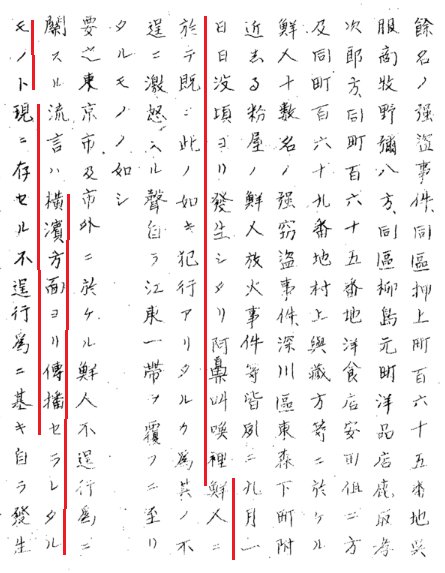 餘名ノ強盗事件、同區押上町百六十五番地呉
服商牧野彌八方、同區柳島元町洋品店鹿取孝
次郎方、同町百六十五番地洋食店安田但二方
及同町百六十九番地村上與藏方等ニ於ケル
鮮人十數名ノ強窃盗事件、深川區東森下町附
近ある粉屋ノ鮮人放火事件等皆別ニ九月一
日日没頃ヨリ發生シタリ阿鼻叫喚裡鮮人ニ
於テ既ニ此ノ如キ犯行アリタルカ爲其ノ不
逞ニ激怒スル聲自ラ江東一帯ヲ覆フニ至リ
タルモノノ如シ
要之東京市及市外ニ於ケル鮮人不逞行爲ニ
關スル流言ハ横濱方面ヨリ傳播セラレタル
モノト現ニ存セル不逞行爲ニ基キ自ラ發生